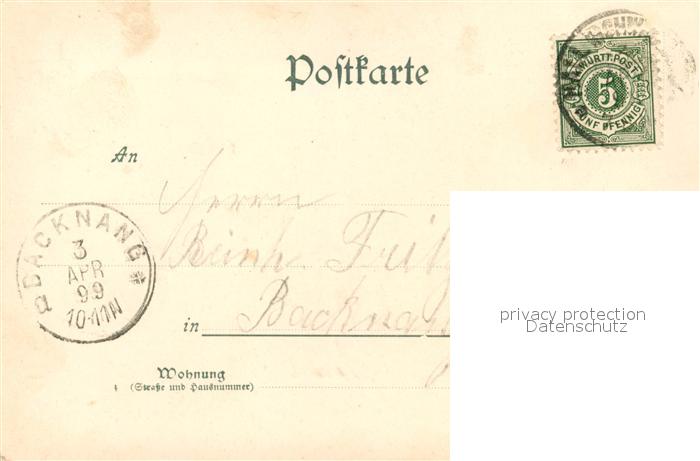 Postkarte
K. WÜRTT. POST
5
FÜNF PFENNIG
An
Herrn
Reinh. Fritz
BACKNANG
3
APR
99
10-11N
a
in Backnang
privacy protection
Datenschutz
Wohnung
(Straße und Hausnummer)